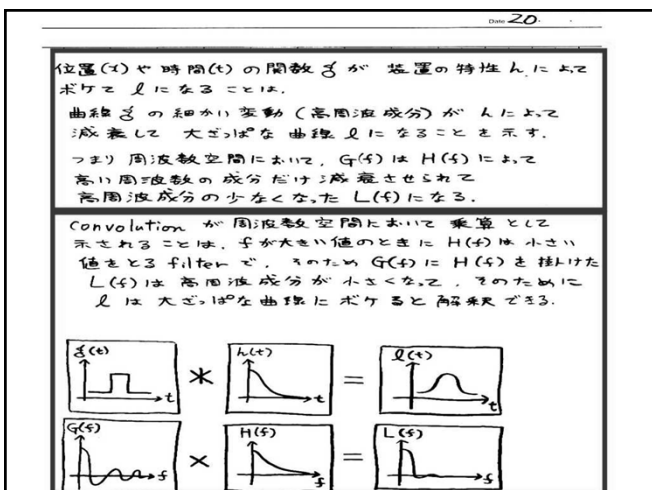 Date 20. .
位置(x)や時間(t)の関数gが 装置の特性hによって
ボケてlになることは、
曲線gの細かい変動(高周波成分)がhによって
減衰して 大ざっぱな曲線lになることを示す.
つまり 周波数空間において, G(f)はH(f)によって
高い周波数の成分だけ減衰させられて
高周波成分の少なくなったL(f)になる.
convolutionが周波数空間において乗算として
示されることは、fが大きい値のときにH(f)は小さい
値をとるfilterで, そのためG(f)にH(f)を掛けた
L(f)は高周波成分が小さくなって, そのために
lは大ざっぱな曲線にボケると解釈できる.
g(t) t * h(t) t = l(t) t
G(f) f × H(f) f = L(f) f